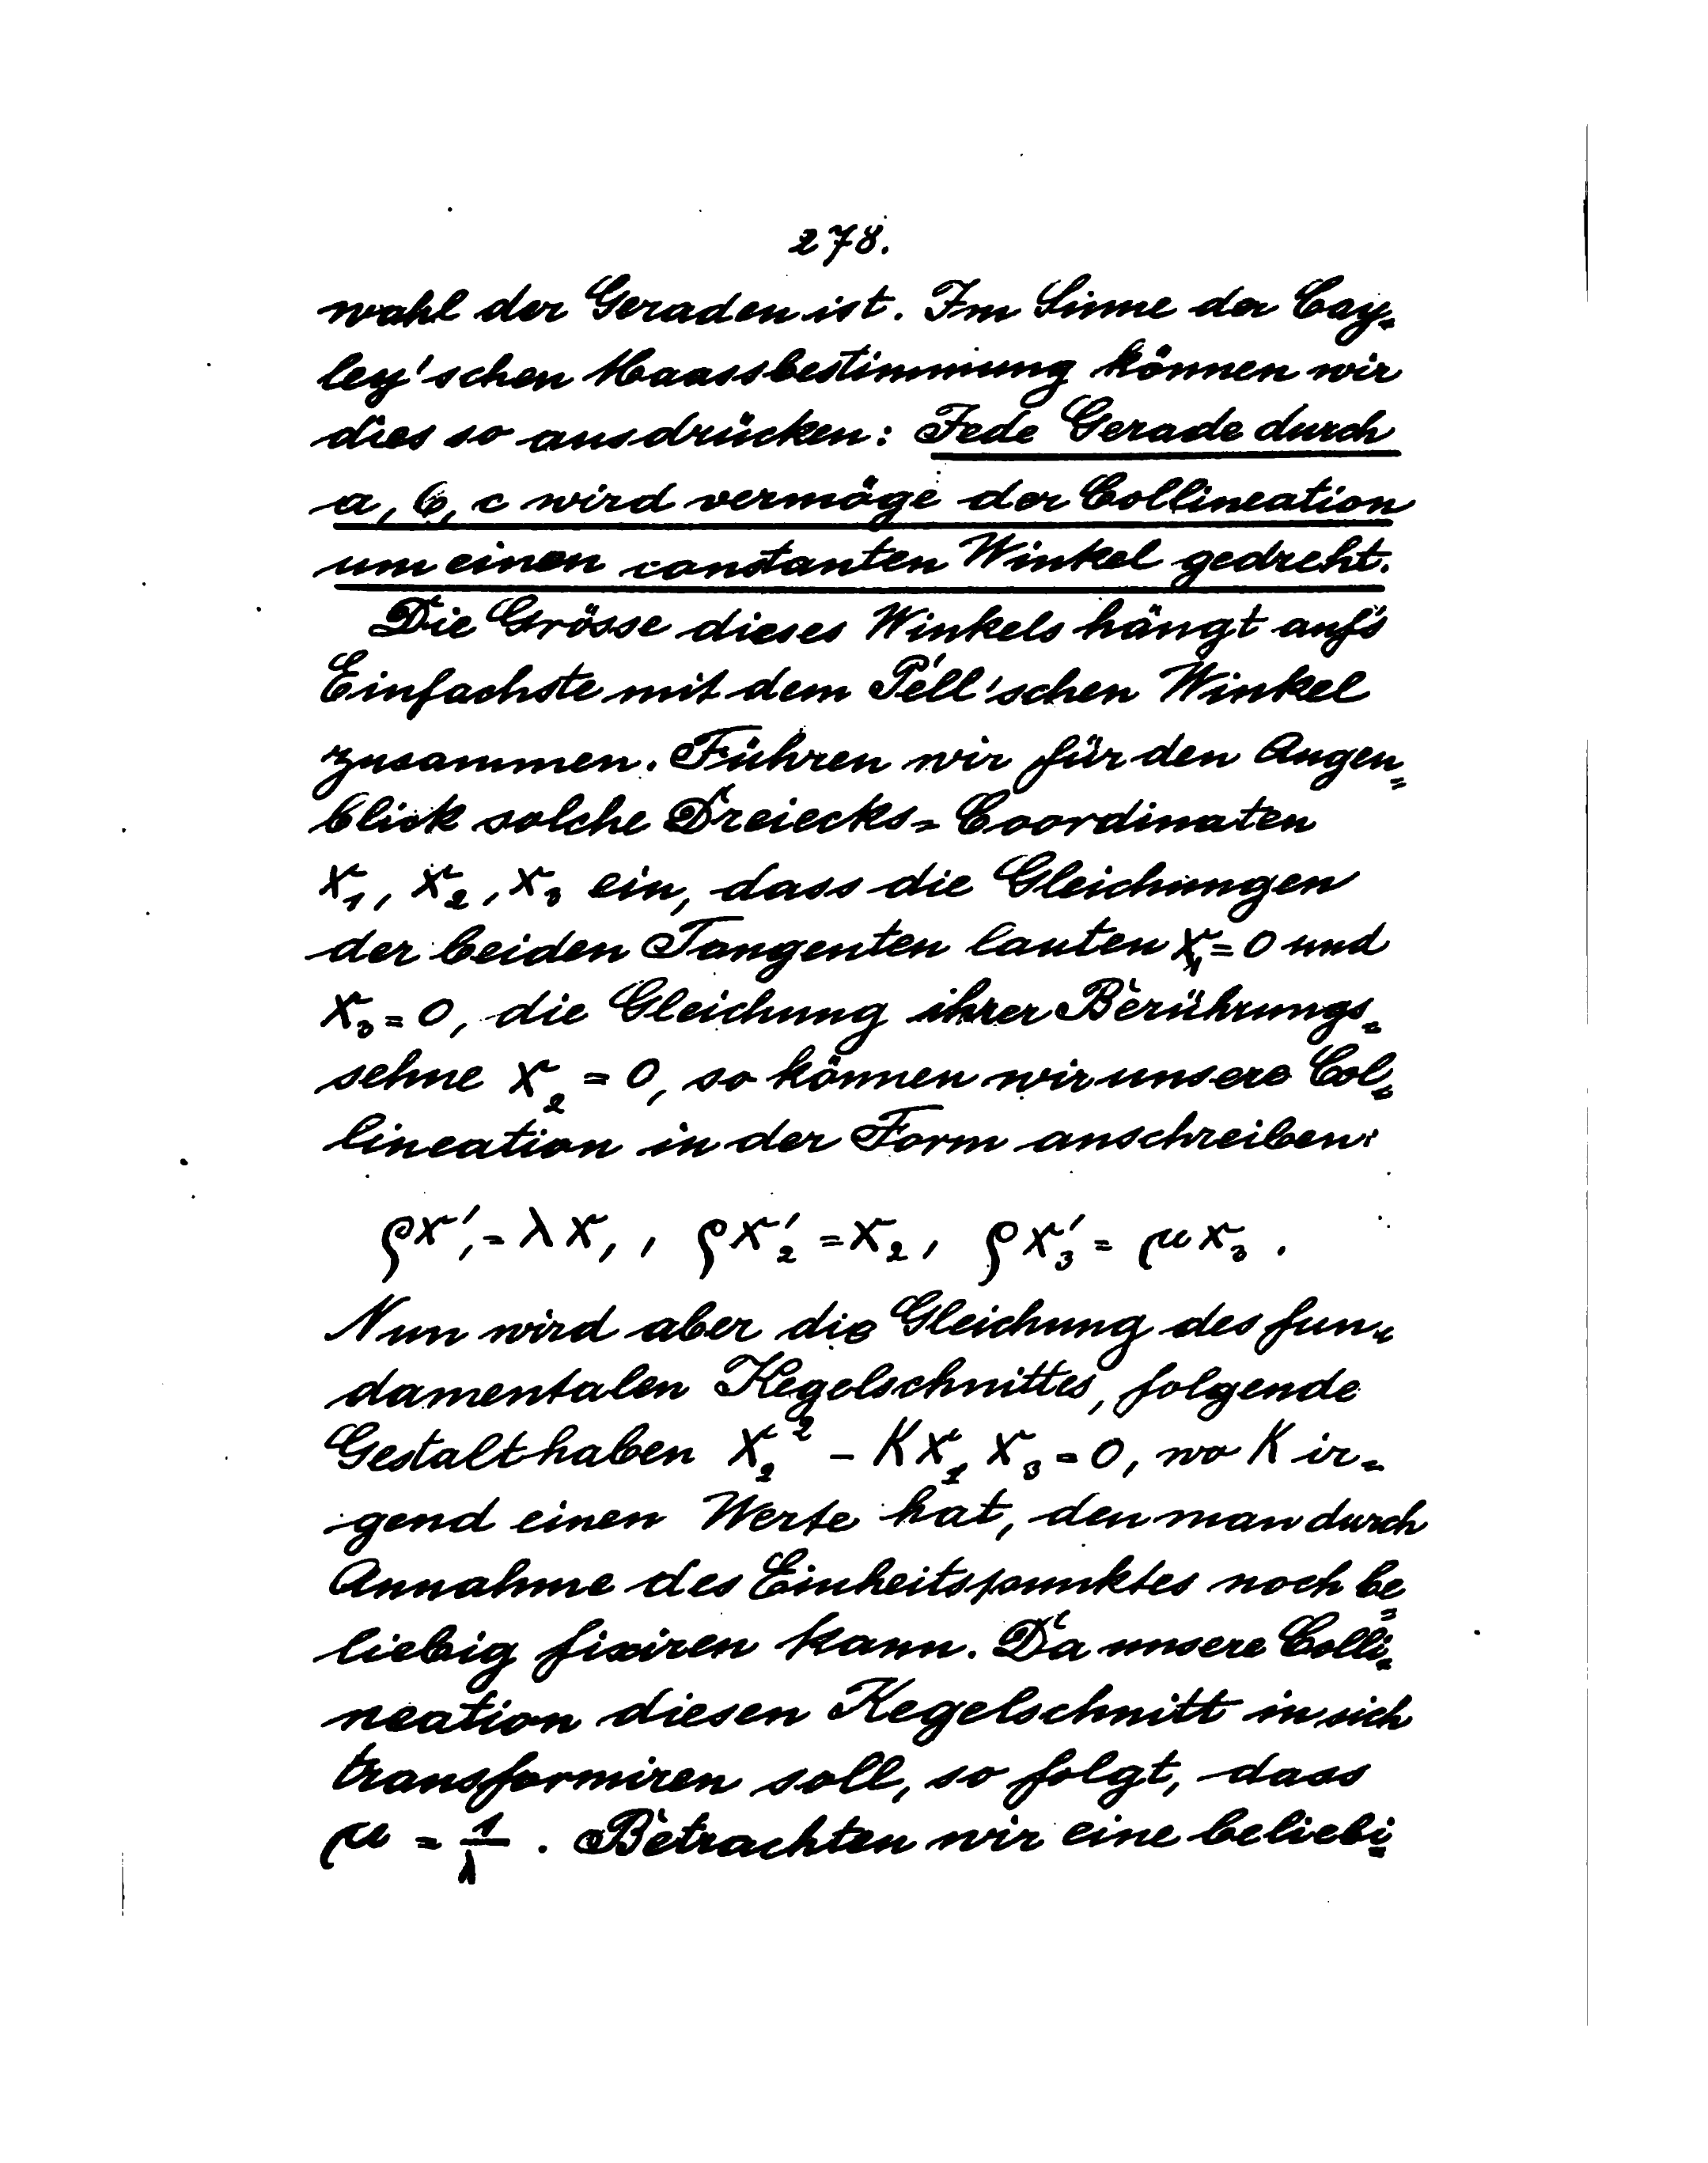 278.
wahl der Geraden ist. Im Sinne der Cay-
ley'schen Maassbestimmung können wir
dies so ausdrücken: Jede Gerade durch
a, b, c wird vermöge der Collineation
um einen constanten Winkel gedreht.
Die Grösse dieses Winkels hängt auf's
Einfachste mit dem Pell'schen Winkel
zusammen. Führen wir für den Augen=
blick solche Dreiecks=Coordinaten
x₁, x₂, x₃ ein, dass die Gleichungen
der beiden Tangenten lauten x₁=0 und
x₃=0, die Gleichung ihrer Berührungs=
sehne x₂=0, so können wir unsere Col=
lineation in der Form anschreiben:
ρx'₁=λx₁, ρx'₂=x₂, ρx'₃=μx₃.
Nun wird aber die Gleichung des fun=
damentalen Kegelschnittes, folgende
Gestalt haben x₂² - Kx₁x₃=0, wo K ir=
gend einen Werte hat, den man durch
Annahme des Einheitspunktes noch be=
liebig fixiren kann. Da unsere Colli=
neation diesen Kegelschnitt in sich
transformiren soll, so folgt, dass
μ = 1/λ. Betrachten wir eine beliebi=